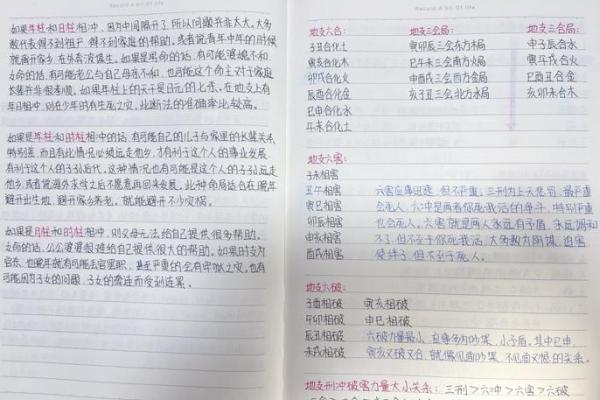 Record A bit Of life
如果是年柱和日柱相冲，因为中间隔开了，所以问题并非太大。大多
数代表得不到祖产，得不到家庭的帮助。或者说青年中年的时候
就离开家乡，在外奔波谋生。如果是男命的话，有可能婆媳不和，
女命的话，有可能老公与自己母亲不和，也可能这个命主对于家庭
长辈并非很孝顺。如果年柱上的天干是日元的七杀，在地支上有
年日相冲，则在少年时有牢危之灾，此断法的准确率比较高。
如果是年柱和时柱相冲的话，有可能自己的儿子与家里的长辈关系
特别差，而且有此情况必须远走他乡，才有利于这个人的事业发展，
有利于这个人的子孙后代。这种情况也有可能是这个人的子孙远走
他乡，或者说海外求学之后不愿意再回来发展。此种命局适合在晚年
避开出生地，避开家乡养老，就能避开不少灾祸。
如果是月柱和时柱相冲，则父母无法给自己提供很多帮助。
女命的话，公公婆婆很难给自己提供很大的帮助。如果时支为
官杀，也晚年就有可能丢官罢职，甚至严重的会有牢狱之灾，也有
可能因为子女的问题，子女的牵连而受到连累。
Record A bit Of life
地支六合： 地支三会局： 地支三合局：
子丑合化土 寅卯辰三会东方木局 申子辰合水
寅亥合化木 巳午未三会南方火局 寅午戌合火
卯戌合化火 申酉戌三会西方金局 巳酉丑合金
辰酉合化金 亥子丑三会北方水局 亥卯未合木
巳申合化水
午未合化土
地支六害：
子未相害
丑午相害 六害应事迅速，但不严重。三刑为上天惩罚，最严重
寅巳相害 会死人。六冲是两者你死我活的争斗，特别严重
卯辰相害 也会死人。六害就是两人永远有矛盾，永远调和
申亥相害 不了，但不至于你死我活，大多数为阴谋、迫害、
酉戌相害 使绊子，但不至于死人。
地支六破：
子酉相破 寅亥相破
午卯相破 申巳相破
辰丑相破 六破力量最小，直象多为吵架，小矛盾。其中巳申、
未戌相破 寅亥又破又合，就像见面吵架，不见面又想的关系。
地支刑冲破害力量大小关系：三刑＞六冲＞六害＞六破